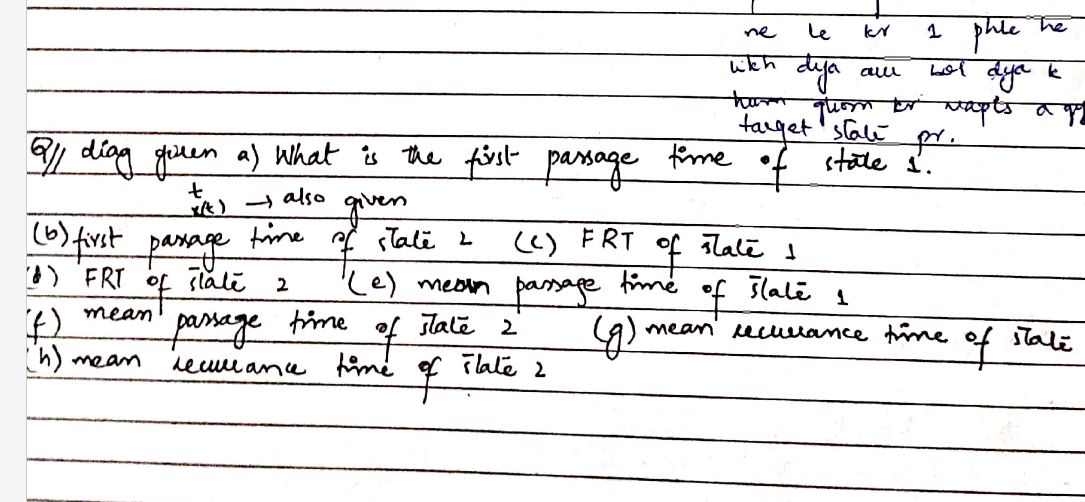 ne le kr 1 phle he
likh dya aur bol dya k
hum ghom kr wapis a
target state pr.
Q// diag given a) What is the first passage time of state 1.
t
x(t) → also given
(b) first passage time of state 2 (c) FRT of state 1
(d) FRT of state 2 (e) mean passage time of state 1
(f) mean passage time of state 2 (g) mean recurrance time of state
(h) mean recurrance time of state 2